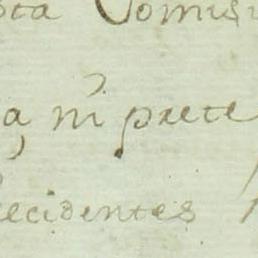 ota Comis
a, ni prete
recidentes